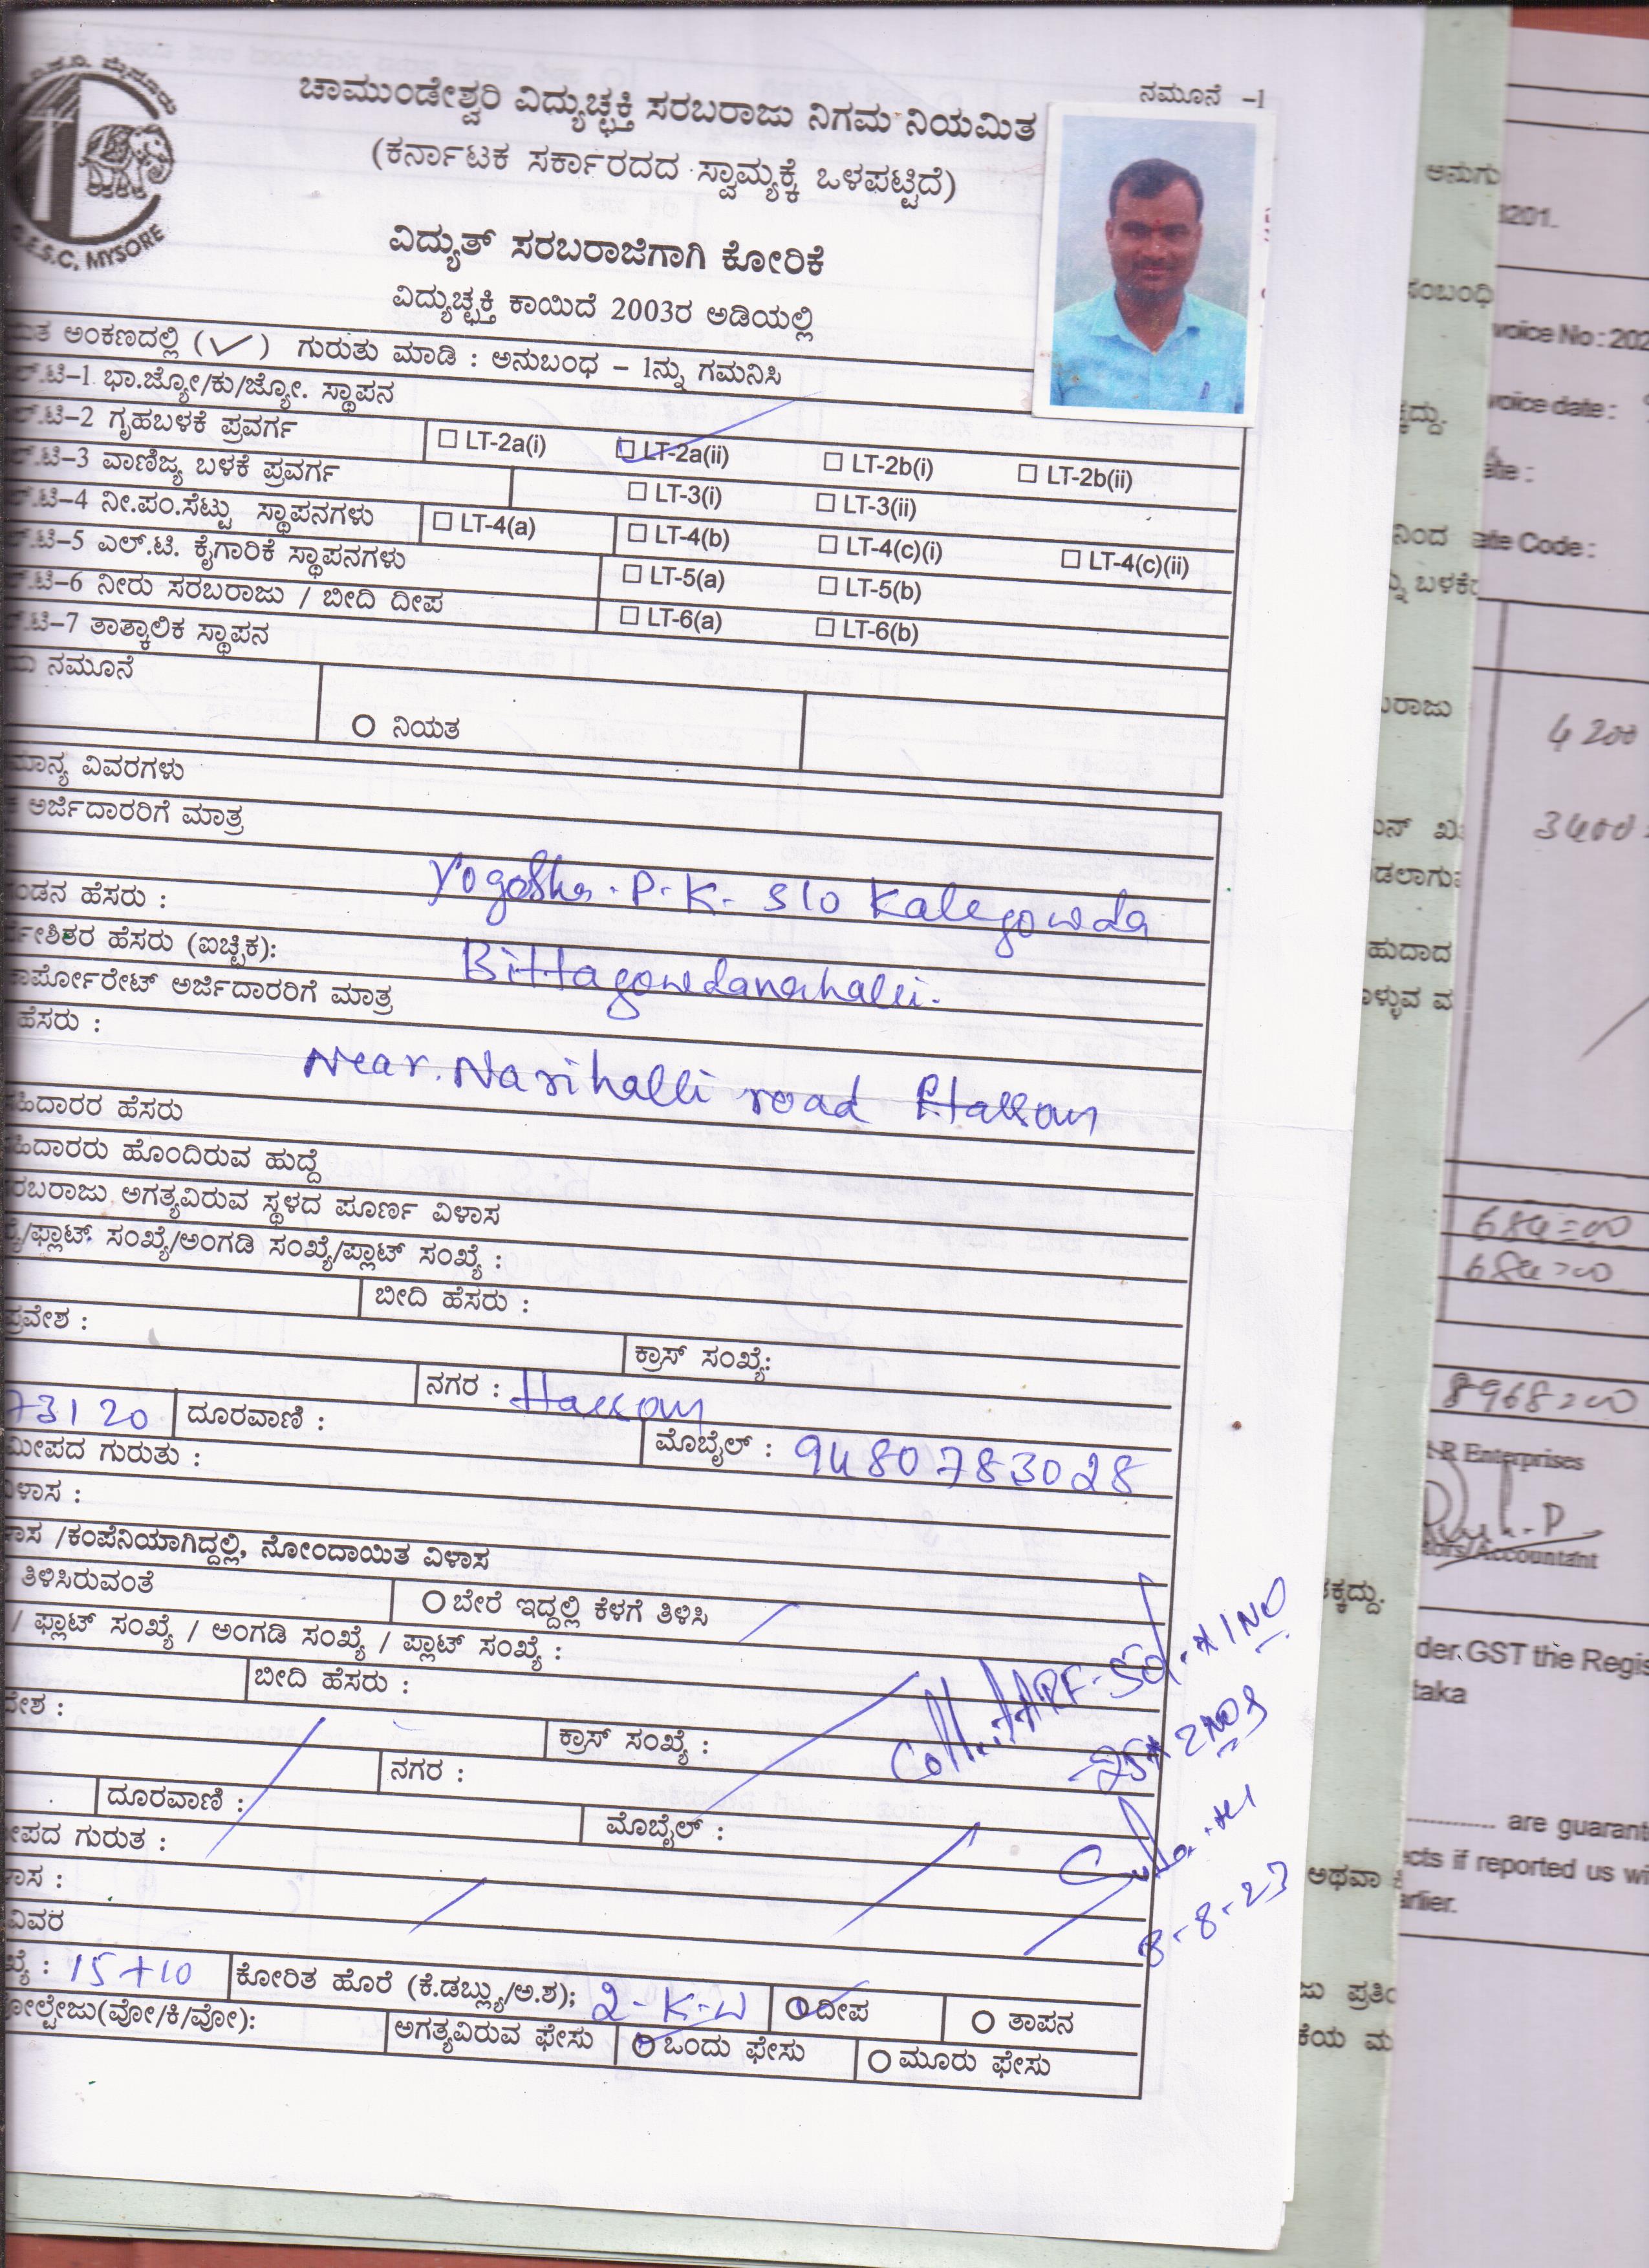 ನಮೂನೆ -1
ಚಾಮುಂಡೇಶ್ವರಿ ವಿದ್ಯುಚ್ಛಕ್ತಿ ಸರಬರಾಜು ನಿಗಮ ನಿಯಮಿತ
(ಕರ್ನಾಟಕ ಸರ್ಕಾರದದ ಸ್ವಾಮ್ಯಕ್ಕೆ ಒಳಪಟ್ಟಿದೆ)
MYSORE
ವಿದ್ಯುತ್ ಸರಬರಾಜಿಗಾಗಿ ಕೋರಿಕೆ
ವಿದ್ಯುಚ್ಛಕ್ತಿ ಕಾಯಿದೆ 2003ರ ಅಡಿಯಲ್ಲಿ
ಅಂಕಣದಲ್ಲಿ (✓) ಗುರುತು ಮಾಡಿ : ಅನುಬಂಧ – 1ನ್ನು ಗಮನಿಸಿ
.ಟಿ-1 ಭಾ.ಜ್ಯೋ/ಕು/ಜ್ಯೋ. ಸ್ಥಾಪನ
.ಟಿ-2 ಗೃಹಬಳಕೆ ಪ್ರವರ್ಗ □ LT-2a(i) □ LT-2a(ii) □ LT-2b(i) □ LT-2b(ii)
.ಟಿ-3 ವಾಣಿಜ್ಯ ಬಳಕೆ ಪ್ರವರ್ಗ □ LT-3(i) □ LT-3(ii)
.ಟಿ-4 ನೀ.ಪಂ.ಸೆಟ್ಟು ಸ್ಥಾಪನಗಳು □ LT-4(a) □ LT-4(b) □ LT-4(c)(i) □ LT-4(c)(ii)
.ಟಿ-5 ಎಲ್.ಟಿ. ಕೈಗಾರಿಕೆ ಸ್ಥಾಪನಗಳು □ LT-5(a) □ LT-5(b)
.ಟಿ-6 ನೀರು ಸರಬರಾಜು / ಬೀದಿ ದೀಪ □ LT-6(a) □ LT-6(b)
.ಟಿ-7 ತಾತ್ಕಾಲಿಕ ಸ್ಥಾಪನ
ನಮೂನೆ
○ ನಿಯತ
ಮಾನ್ಯ ವಿವರಗಳು
ಅರ್ಜಿದಾರರಿಗೆ ಮಾತ್ರ
ಂಡನ ಹೆಸರು : Yogesha. P. K. S/o Kalegowda
ಹೆಸರು (ಐಚ್ಛಿಕ): Bittagowdanahalli.
ಾರ್ಪೋರೇಟ್ ಅರ್ಜಿದಾರರಿಗೆ ಮಾತ್ರ
ಹೆಸರು :
Near. Narihalli road Hassan
ಹಿದಾರರ ಹೆಸರು
ಹಿದಾರರು ಹೊಂದಿರುವ ಹುದ್ದೆ
ರಬರಾಜು ಅಗತ್ಯವಿರುವ ಸ್ಥಳದ ಪೂರ್ಣ ವಿಳಾಸ
/ಫ್ಲಾಟ್ ಸಂಖ್ಯೆ/ಅಂಗಡಿ ಸಂಖ್ಯೆ/ಪ್ಲಾಟ್ ಸಂಖ್ಯೆ :
ಬೀದಿ ಹೆಸರು :
ಪ್ರವೇಶ :
ಕ್ರಾಸ್ ಸಂಖ್ಯೆ:
ನಗರ : Hassan
73120 ದೂರವಾಣಿ : ಮೊಬೈಲ್ : 9480783028
ಮೀಪದ ಗುರುತು :
ವಿಳಾಸ :
ಾಸ /ಕಂಪೆನಿಯಾಗಿದ್ದಲ್ಲಿ, ನೋಂದಾಯಿತ ವಿಳಾಸ
ತಿಳಿಸಿರುವಂತೆ ○ ಬೇರೆ ಇದ್ದಲ್ಲಿ ಕೆಳಗೆ ತಿಳಿಸಿ
/ ಫ್ಲಾಟ್ ಸಂಖ್ಯೆ / ಅಂಗಡಿ ಸಂಖ್ಯೆ / ಪ್ಲಾಟ್ ಸಂಖ್ಯೆ :
ಬೀದಿ ಹೆಸರು :
ೇಶ :
ಕ್ರಾಸ್ ಸಂಖ್ಯೆ :
ನಗರ :
ದೂರವಾಣಿ : ಮೊಬೈಲ್ :
ೀಪದ ಗುರುತ :
ಳಾಸ :
8-8-23
ವಿವರ
: 15+10 ಕೋರಿತ ಹೊರೆ (ಕೆ.ಡಬ್ಲ್ಯು/ಅ.ಶ); 2-K.W ○ ದೀಪ ○ ತಾಪನ
ೋಲ್ಟೇಜು(ವೋ/ಕಿ/ವೋ): ಅಗತ್ಯವಿರುವ ಫೇಸು ○ ಒಂದು ಫೇಸು ○ ಮೂರು ಫೇಸು
3201.
voice No : 202
voice date :
ate :
ate Code :
4200
3400
684=00
684=00
8968=00
R Enterprises
Accountant
der GST the Regis
taka
are guarant
cts if reported us wi
arlier.